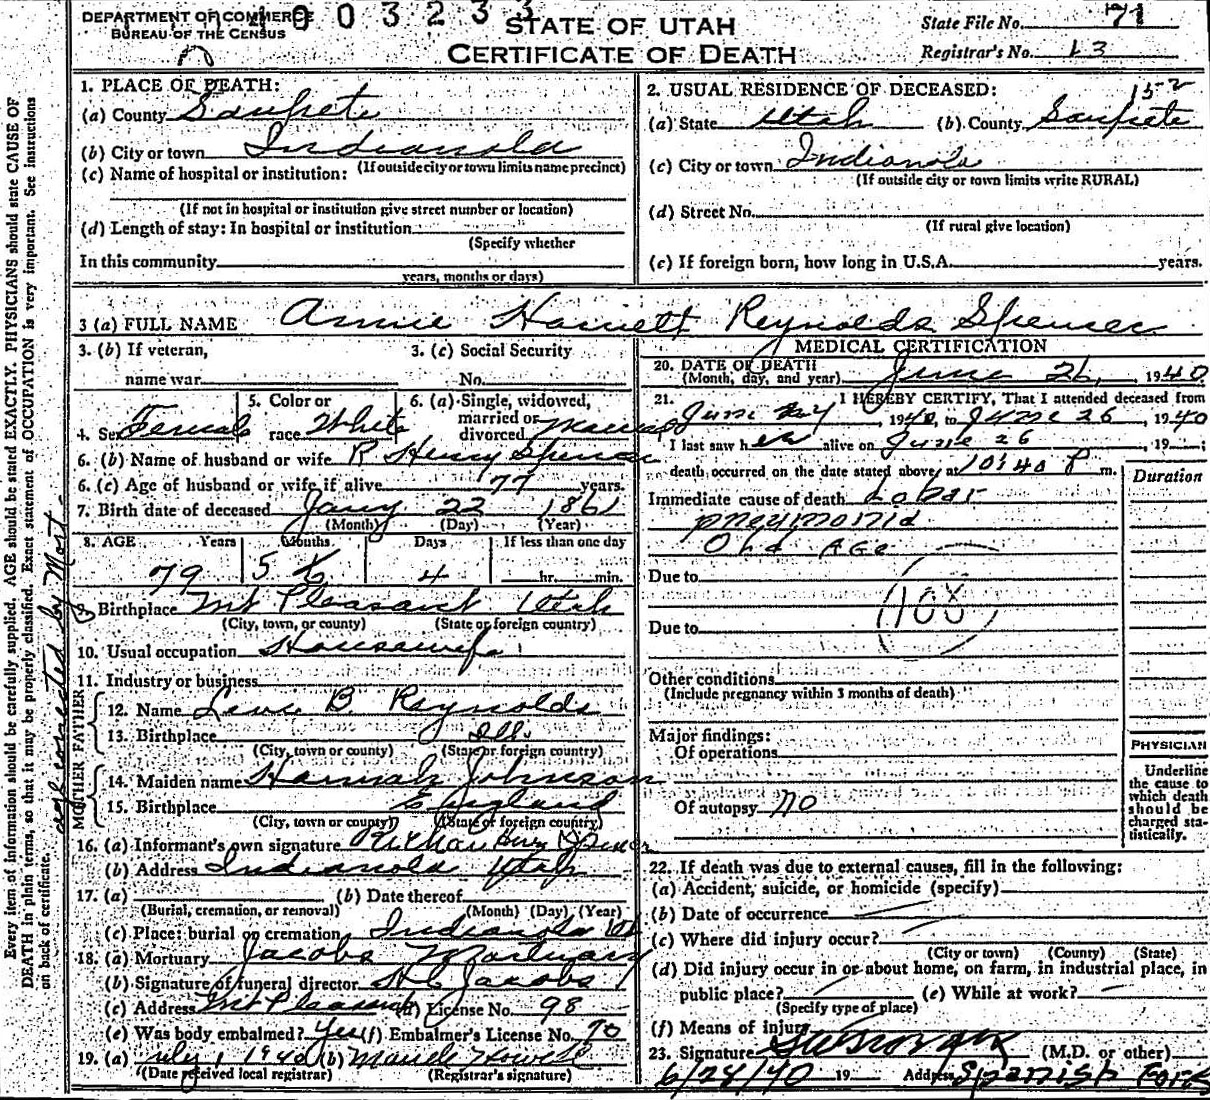 DEPARTMENT OF COMMERCE
BUREAU OF THE CENSUS
0 0 3 2 3 3
STATE OF UTAH
CERTIFICATE OF DEATH
State File No. 71
Registrar's No. 13
Every item of information should be carefully supplied. AGE should be stated EXACTLY. PHYSICIANS should state CAUSE OF
DEATH in plain terms, so that it may be properly classified. Exact statement of OCCUPATION is very important. See instructions
on back of certificate.
age corrected by Mort
1. PLACE OF DEATH:
(a) County Sanpete
(b) City or town Indianola
(If outside city or town limits name precinct)
(c) Name of hospital or institution:
(If not in hospital or institution give street number or location)
(d) Length of stay: In hospital or institution
(Specify whether
In this community
years, months or days)
2. USUAL RESIDENCE OF DECEASED:
15-2
(a) State Utah (b) County Sanpete
(c) City or town Indianola
(If outside city or town limits write RURAL)
(d) Street No.
(If rural give location)
(e) If foreign born, how long in U.S.A. years.
3 (a) FULL NAME Annie Harriett Reynolds Spencer
3. (b) If veteran,
name war
3. (c) Social Security
No.
4. Sex Female
5. Color or
race White
6. (a) Single, widowed,
married or
divorced Married
6. (b) Name of husband or wife R Henry Spencer
6. (c) Age of husband or wife if alive 77 years.
7. Birth date of deceased Jany 22 1861
(Month) (Day) (Year)
8. AGE Years Months Days If less than one day
79 5 4 hr. min.
9. Birthplace Mt Pleasant Utah
(City, town, or county) (State or foreign country)
10. Usual occupation Housewife
11. Industry or business
FATHER
12. Name Levi B. Reynolds
13. Birthplace Ill.
(City, town or county) (State or foreign country)
MOTHER
14. Maiden name Hannah Johnson
15. Birthplace England
(City, town or county) (State or foreign country)
16. (a) Informant's own signature
(b) Address Indianola Utah
17. (a) (b) Date thereof
(Burial, cremation, or removal) (Month) (Day) (Year)
(c) Place: burial or cremation Indianola Ut
18. (a) Mortuary Jacobs Mortuary
(b) Signature of funeral director Jacobs
(c) Address Mt Pleasant (d) License No. 98
(e) Was body embalmed? Yes (f) Embalmer's License No. 70
19. (a) July 1, 1940 (b) Maude Howell
(Date received local registrar) (Registrar's signature)
MEDICAL CERTIFICATION
20. DATE OF DEATH
(Month, day, and year) June 26, 1940
21. I HEREBY CERTIFY, That I attended deceased from
June 1940, to June 26, 1940
I last saw her alive on June 26, 19
death occurred on the date stated above, at 10:40 P m.
Duration
Immediate cause of death Lobar
pneumonia
Old Age
Due to
108
Due to
Other conditions
(Include pregnancy within 3 months of death)
Major findings:
Of operations
Of autopsy no
PHYSICIAN
Underline
the cause to
which death
should be
charged sta-
tistically.
22. If death was due to external causes, fill in the following:
(a) Accident, suicide, or homicide (specify)
(b) Date of occurrence
(c) Where did injury occur?
(City or town) (County) (State)
(d) Did injury occur in or about home, on farm, in industrial place, in
public place? (e) While at work?
(Specify type of place)
(f) Means of injury
23. Signature (M.D. or other)
6/28/40 19 Address Spanish Fork